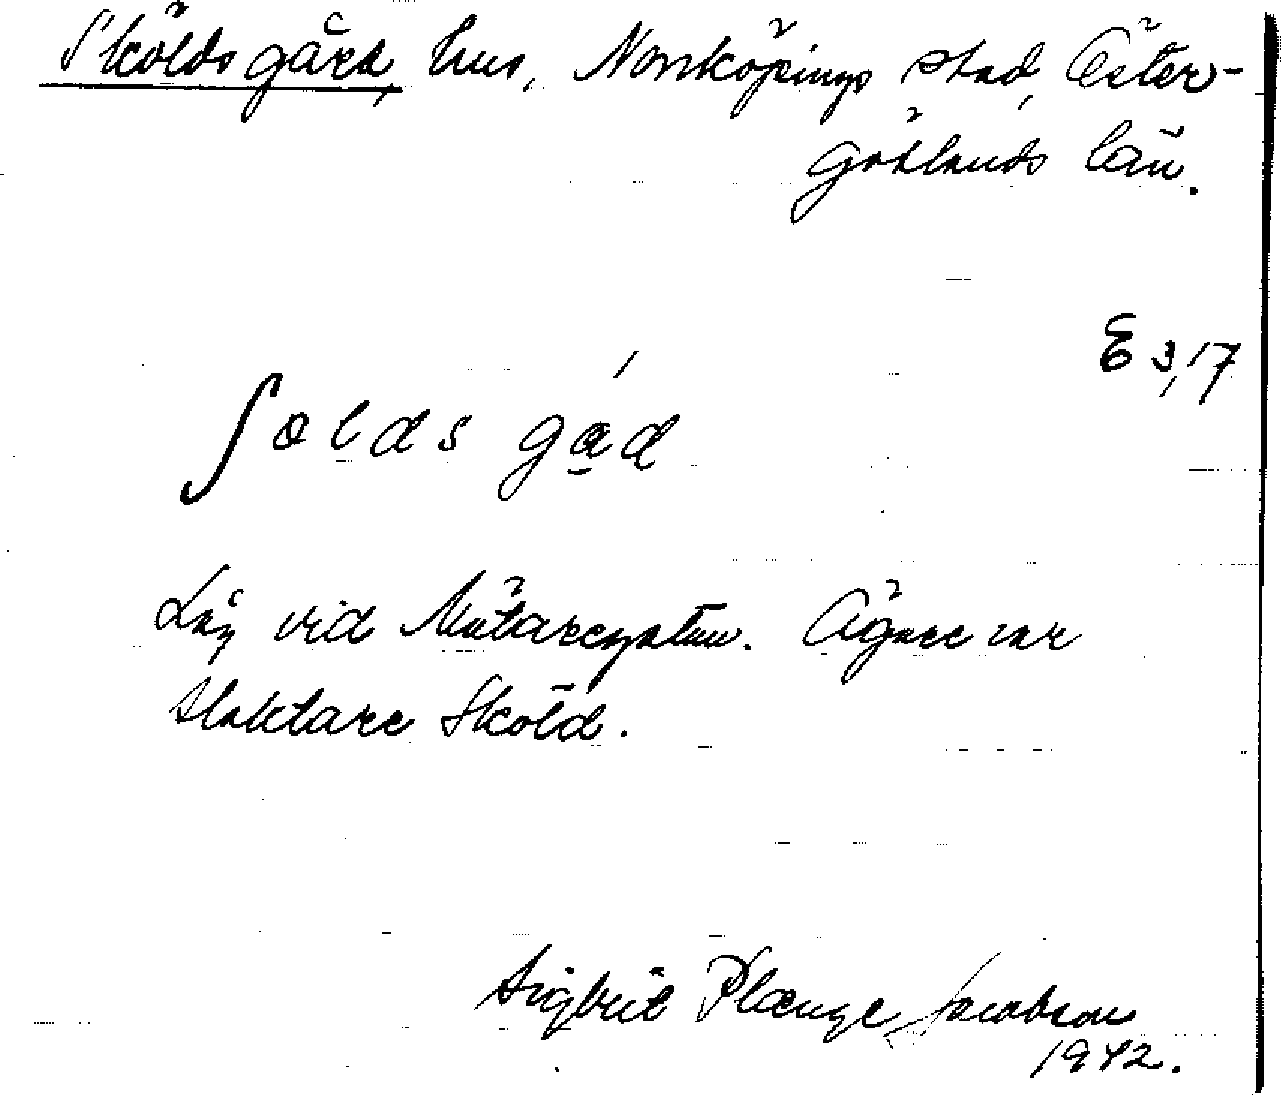 Skölds gård, hus, Norrköpings stad, Öster-
götlands län.
E 3,17
ʃɵlds gɑ́d
Låg vid Mätaregatan. Ägare var
slaktare Sköld.
Sigbrit Plænge Jacobson
1942.